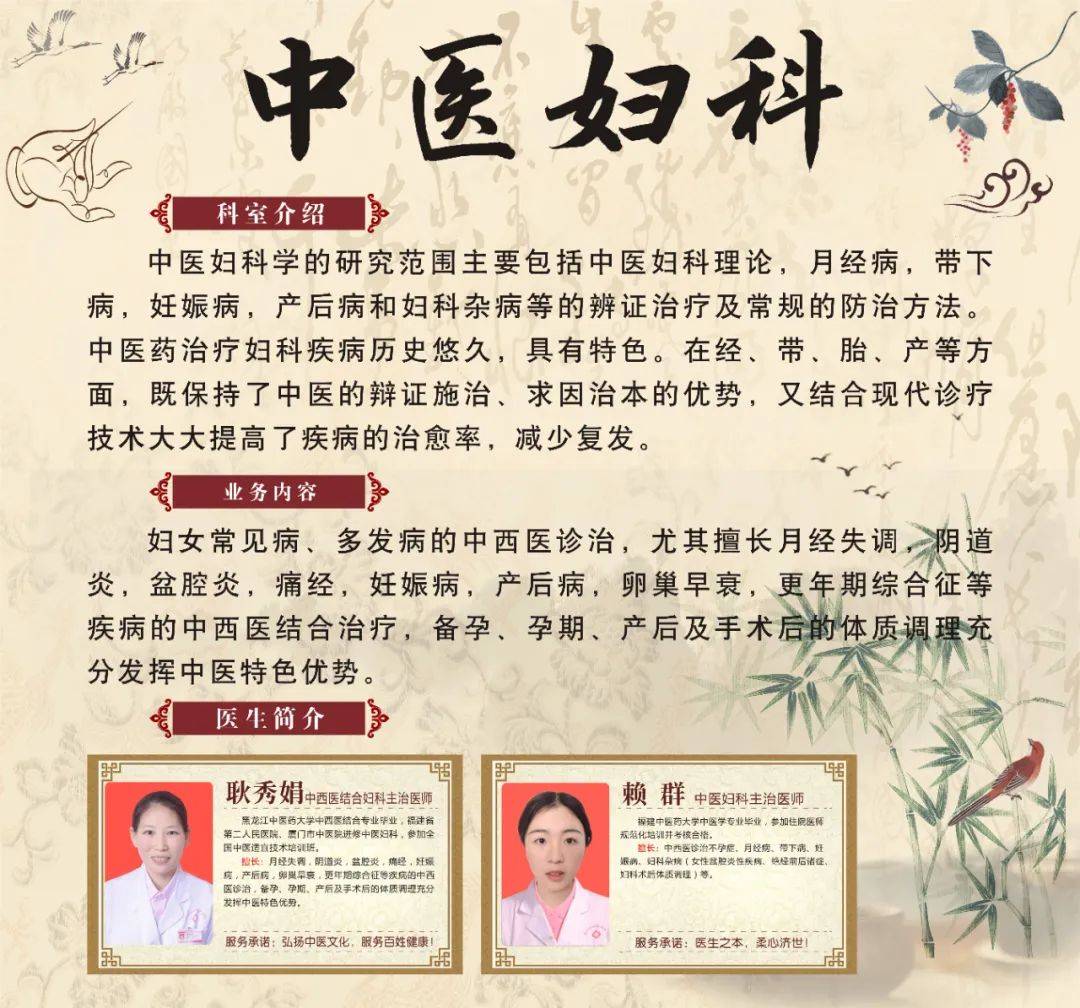 中医妇科
科室介绍
中医妇科学的研究范围主要包括中医妇科理论，月经病，带下
病，妊娠病，产后病和妇科杂病等的辨证治疗及常规的防治方法。
中医药治疗妇科疾病历史悠久，具有特色。在经、带、胎、产等方
面，既保持了中医的辩证施治、求因治本的优势，又结合现代诊疗
技术大大提高了疾病的治愈率，减少复发。
业务内容
妇女常见病、多发病的中西医诊治，尤其擅长月经失调，阴道
炎，盆腔炎，痛经，妊娠病，产后病，卵巢早衰，更年期综合征等
疾病的中西医结合治疗，备孕、孕期、产后及手术后的体质调理充
分发挥中医特色优势。
医生简介
耿秀娟中西医结合妇科主治医师
黑龙江中医药大学中西医结合专业毕业，福建省
第二人民医院、厦门市中医院进修中医妇科，参加全
国中医适宜技术培训班。
擅长：月经失调，阴道炎，盆腔炎，痛经，妊娠
病，产后病，卵巢早衰，更年期综合征等疾病的中西
医诊治，备孕、孕期、产后及手术后的体质调理充分
发挥中医特色优势。
服务承诺：弘扬中医文化，服务百姓健康！
赖 群 中医妇科主治医师
福建中医药大学中医学专业毕业，参加住院医师
规范化培训并考核合格。
擅长：中西医诊治不孕症、月经病、带下病、妊
娠病、妇科杂病（女性盆腔炎性疾病、绝经前后诸症、
妇科术后体质调理）等。
服务承诺：医生之本，柔心济世！